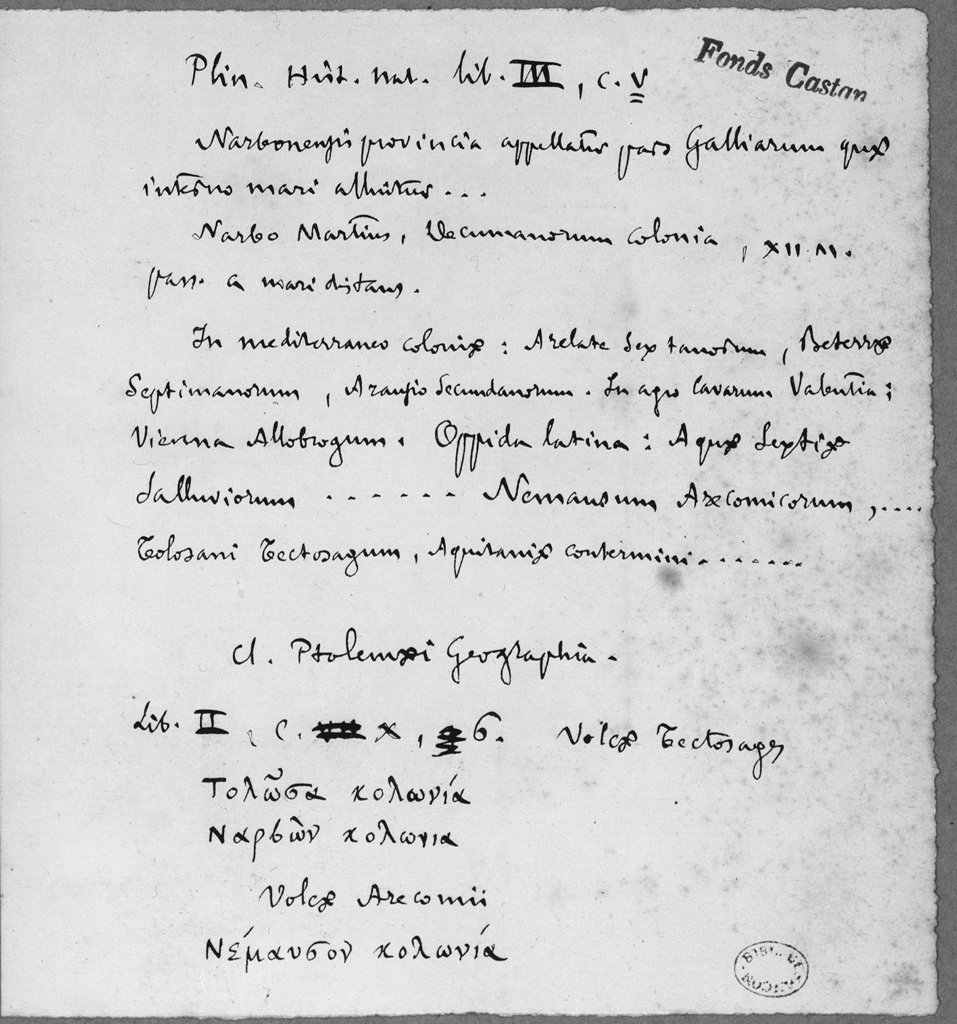 Fonds Castan
Plin. Hist. nat. lib. III, c. V
Narbonensis provincia appellatur pars Galliarum quæ
interno mari alluitur...
Narbo Martius, Decumanorum colonia, XII. M.
pass. a mari distans.
In mediterraneo coloniæ : Arelate Sextanorum, Beterræ
Septimanorum, Arausio Secundanorum. In agro Cavarum Valentia;
Vienna Allobrogum. Oppida latina : Aquæ Sextiæ
Salluviorum ...... Nemausum Arecomicorum,....
Tolosani Tectosagum, Aquitaniæ contermini.......
Cl. Ptolemæi Geographia.
Lib. II, c. X, 6. Volcæ Tectosages
Τολῶσα κολωνία
Ναρβὼν κολωνια
Volcæ Arecomii
Νέμαυσον κολωνία